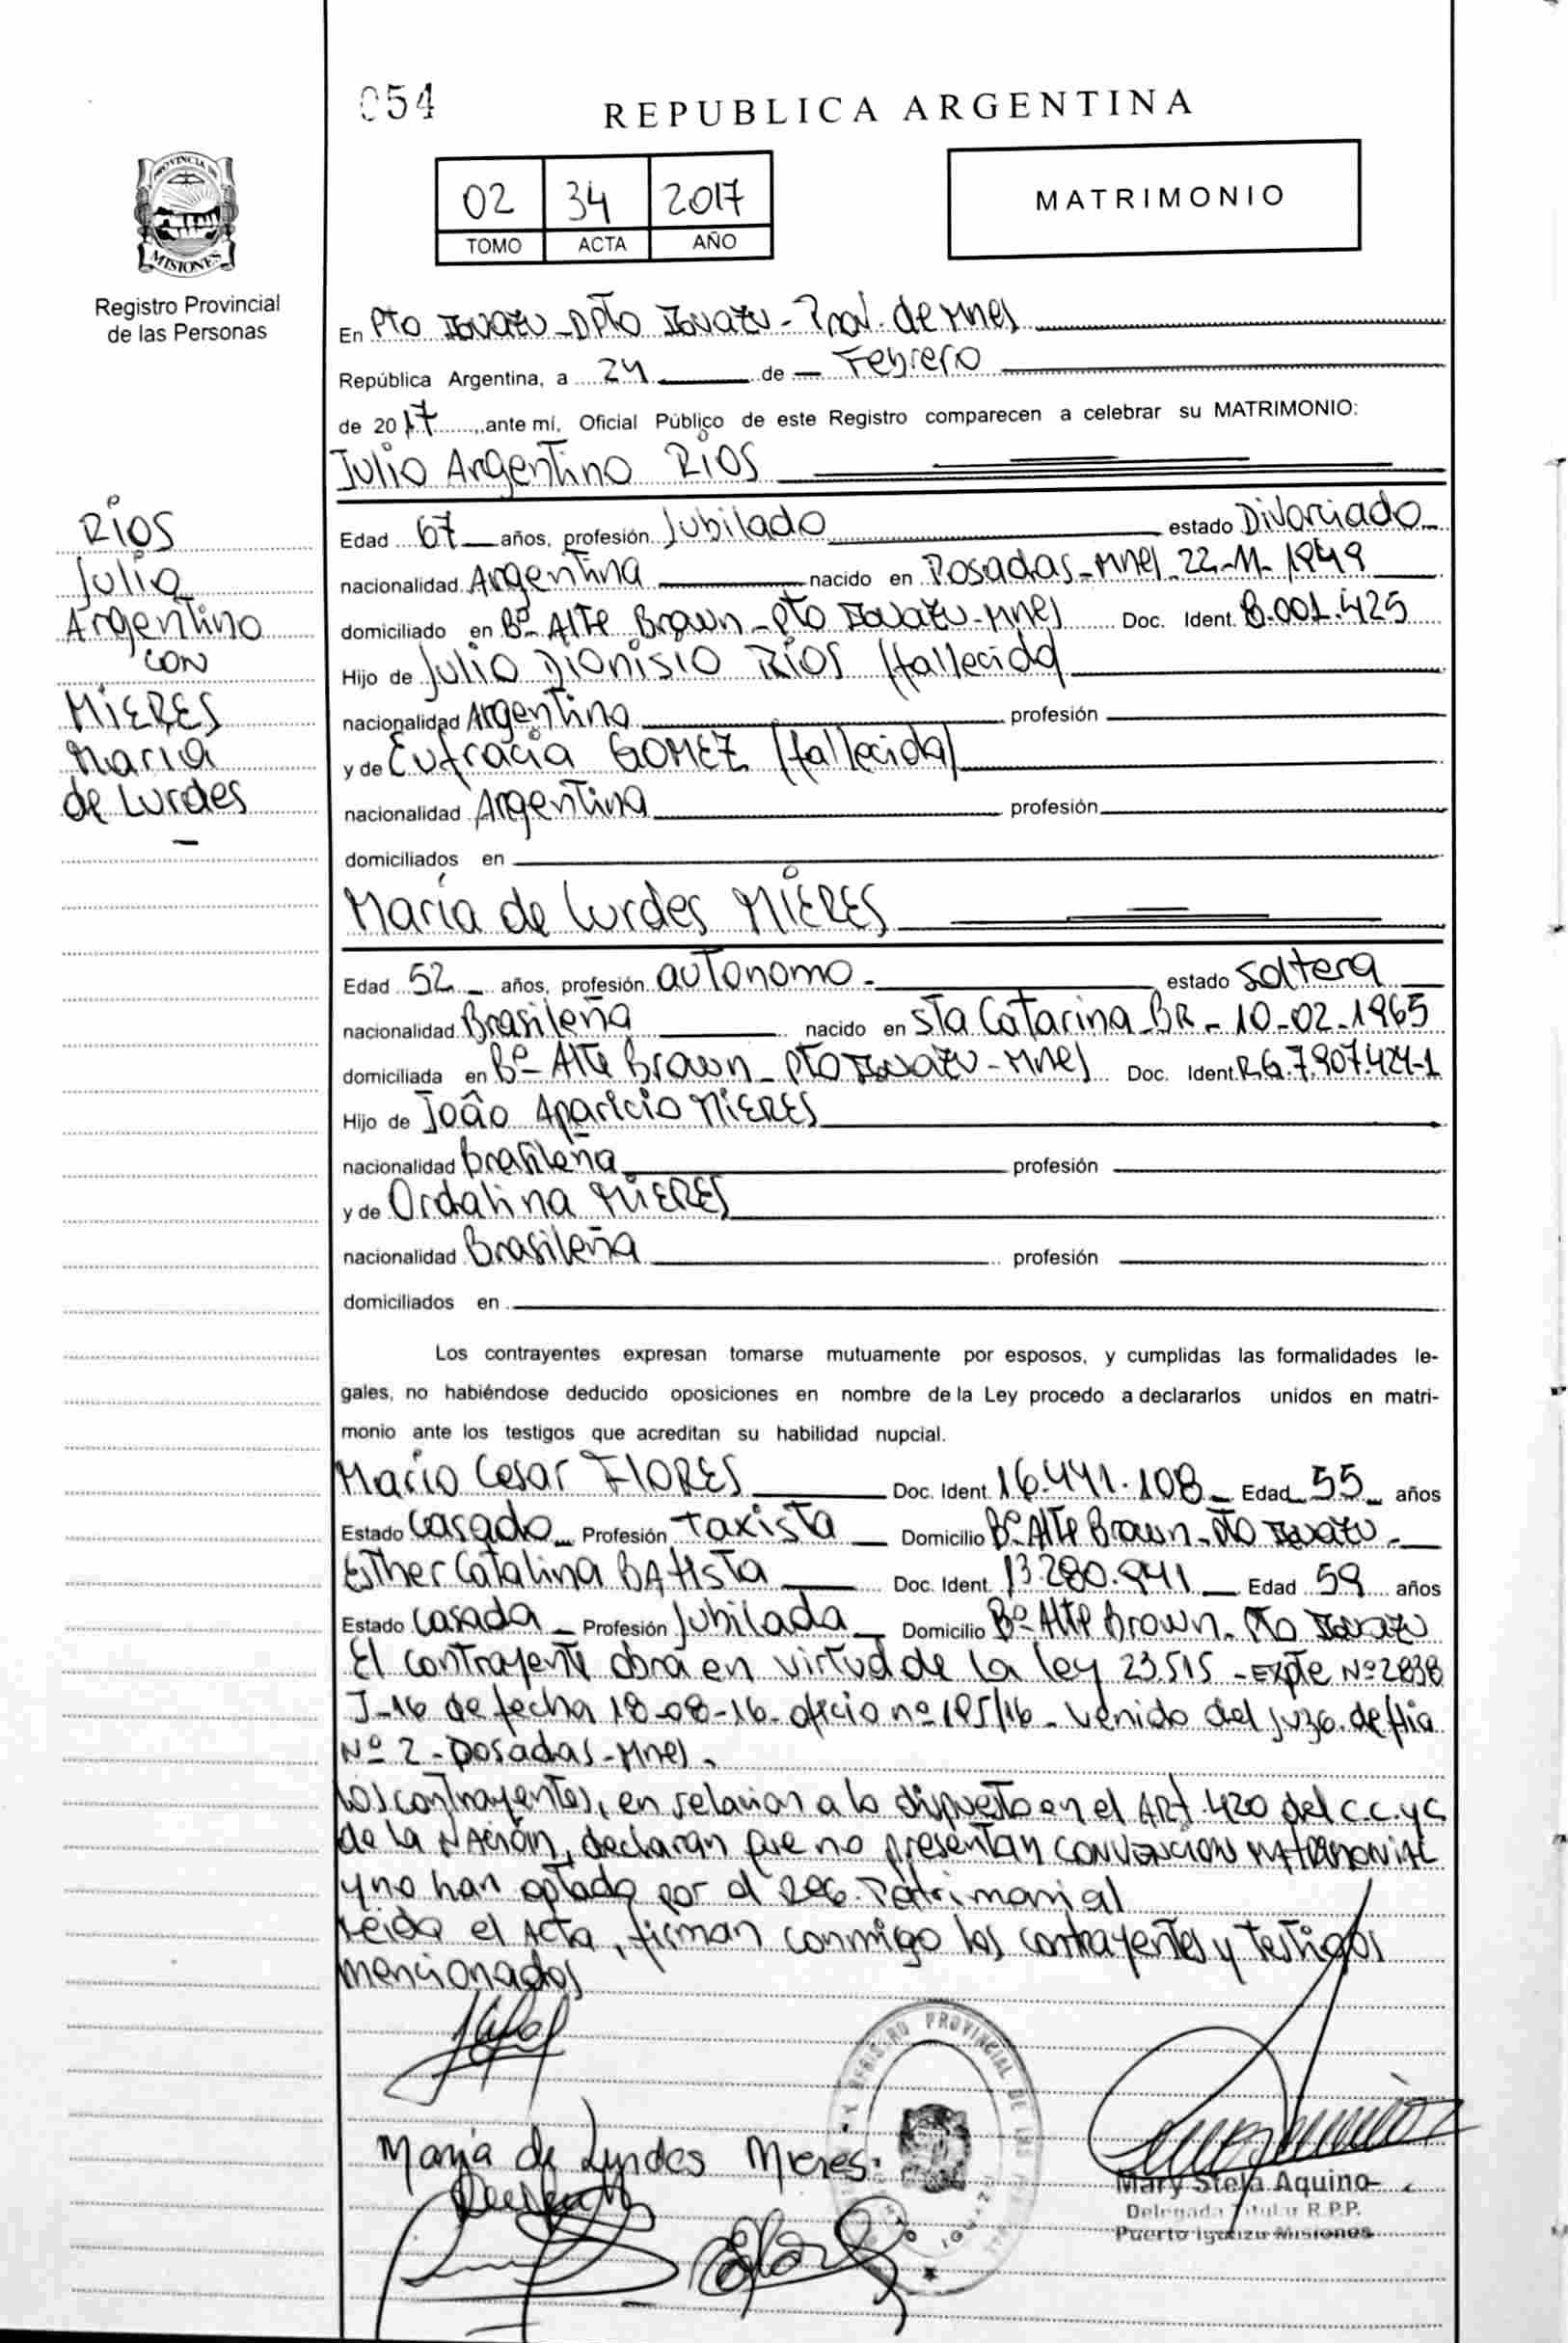 054
REPUBLICA ARGENTINA
02 34 2017
TOMO ACTA AÑO
MATRIMONIO
PROVINCIA DE
MISIONES
Registro Provincial
de las Personas
En Pto Iguazu - Dpto Iguazu - Prov. de Mnes
República Argentina, a 24 de Febrero
de 2017, ante mí, Oficial Público de este Registro comparecen a celebrar su MATRIMONIO:
Julio Argentino RÍOS
RÍOS
Julio
Argentino
CON
MIERES
María
de Lurdes
Edad 67 años, profesión Jubilado estado Divorciado
nacionalidad Argentina nacido en Posadas - Mnes. 22-11-1949
domiciliado en Bº Alte Brown - Pto Iguazu - Mnes Doc. Ident. 8.001.425
Hijo de Julio Dionisio RÍOS (fallecido)
nacionalidad Argentina profesión
y de Eufracia GOMEZ (fallecida)
nacionalidad Argentina profesión
domiciliados en
María de Lurdes MIERES
Edad 52 años, profesión autonomo - estado Soltera
nacionalidad Brasileña nacido en Sta Catarina - BR - 10-02-1965
domiciliada en Bº Alte Brown - Pto Iguazu - Mnes Doc. Ident. R.G. 7.907.424-1
Hijo de João Aparicio MIERES
nacionalidad brasileña profesión
y de Ordalina MIERES
nacionalidad Brasileña profesión
domiciliados en
Los contrayentes expresan tomarse mutuamente por esposos, y cumplidas las formalidades le-
gales, no habiéndose deducido oposiciones en nombre de la Ley procedo a declararlos unidos en matri-
monio ante los testigos que acreditan su habilidad nupcial.
Mario Cesar FLORES Doc. Ident. 16.441.108 Edad 55 años
Estado Casado Profesión taxista Domicilio Bº Alte Brown - Pto Iguazu -
Esther Catalina BAtista Doc. Ident. 13.280.941 Edad 59 años
Estado Casada Profesión Jubilada Domicilio Bº Alte Brown - Pto Iguazu
El contrayente obra en virtud de la ley 23.515 - Expte Nº 2838
J-16 de fecha 18-08-16 - oficio nº 195/16 - Venido del Juzg. de flia
Nº 2 - Posadas - Mnes.
Los contrayentes, en relacion a lo dispuesto en el ARt. 420 del C.C. y C
de la Nación, declaran que no presentan CONVENCION MATRIMONIAL
y no han optado por el Reg. Patrimonial
Leida el Acta, firman conmigo los contrayentes y testigos
mencionados
REGISTRO PROVINCIAL DE LAS
Maria de Lurdes Mieres.
Mary Stela Aquino
Delegada Titular R.P.P.
Puerto Iguazu Misiones